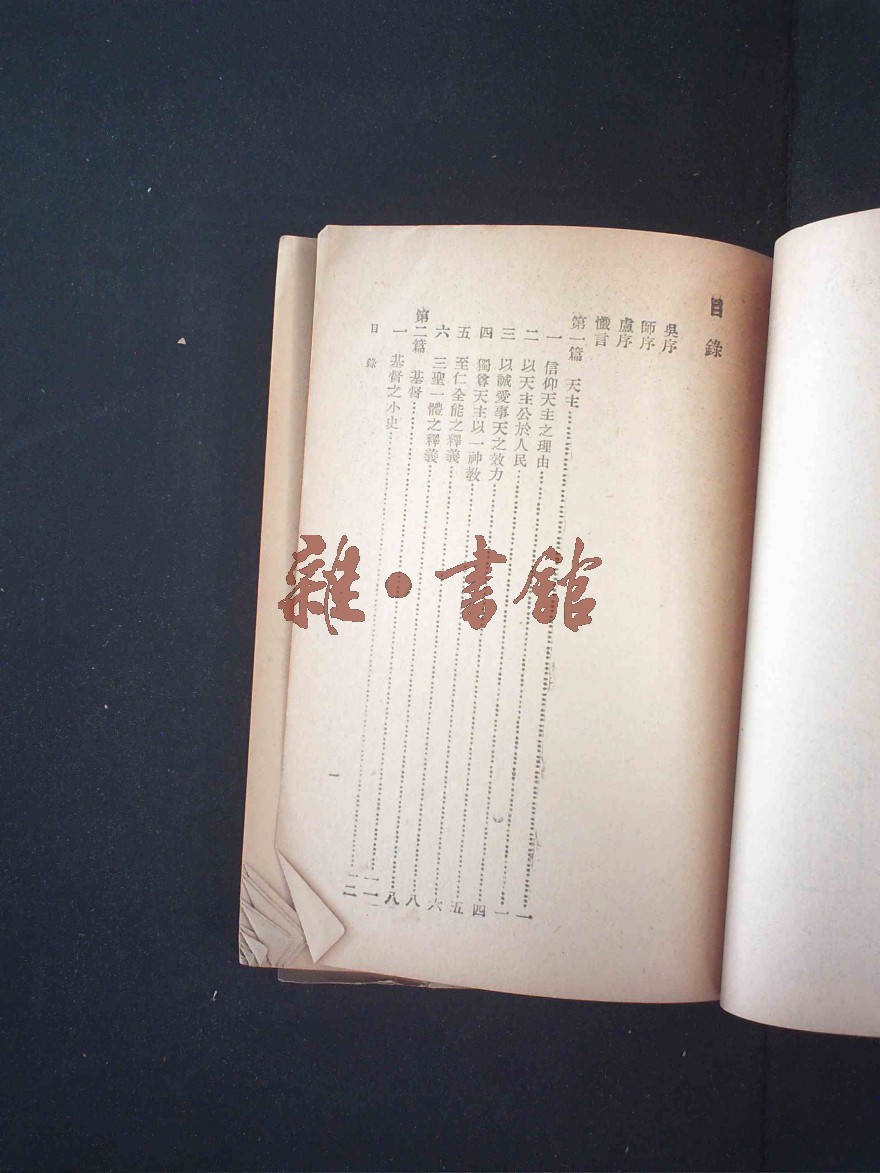 目錄
吳序
師序
盧序
懺言
第一篇 天主……一
一 信仰天主之理由……一
二 以天主公於人民……四
三 以誠愛事天之效力……五
四 獨尊天主以一神教……六
五 至仁全能之釋義……八
六 三聖一體之釋義……八
第二篇 基督……一一
一 基督之小史……一二
目錄
一
雜·書館